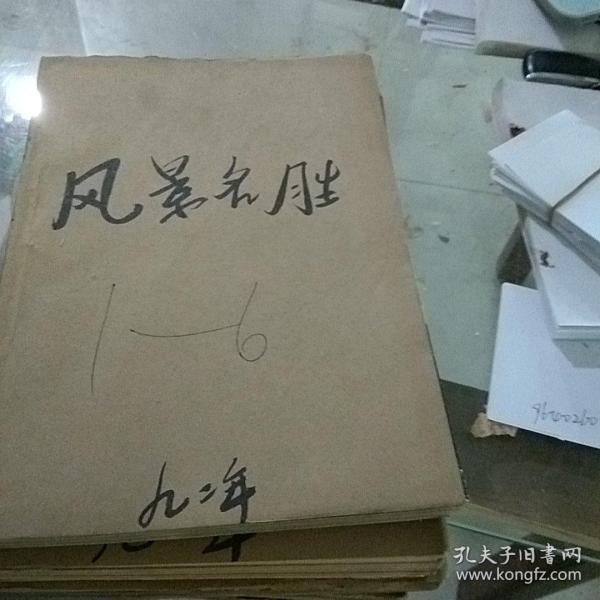 风景名胜
1—6
九二年
孔夫子旧書网
www.kongfz.com